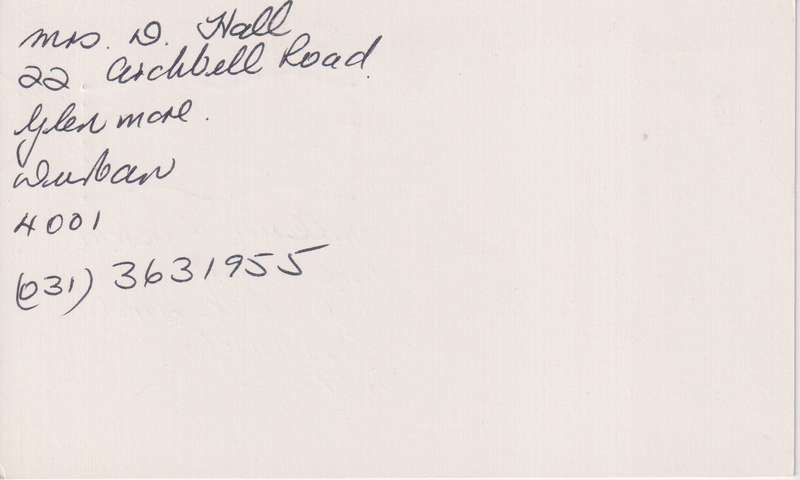 Mrs. D. Hall
22 Archbell Road.
Glenmore.
Durban
4001
(031) 3631955